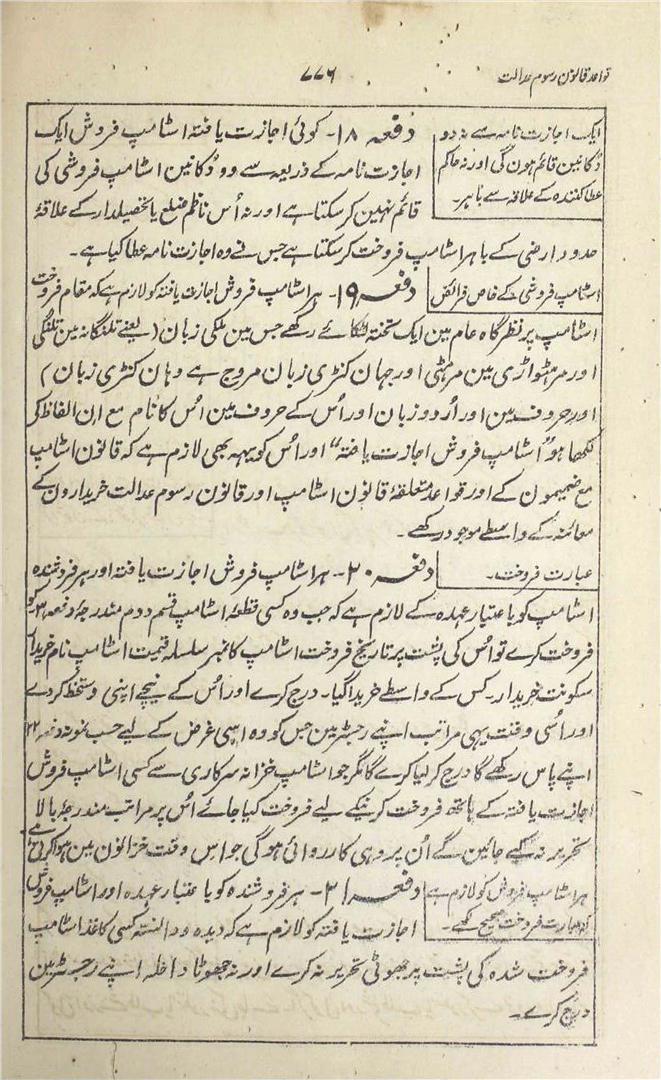 قواعد قانون رسوم عدالت
۷۷۶
ایک اجازت نامہ سے نہ دو
دُکانین قائم ہون گی اور نہ حاکم
عطا کنندہ کے علاقہ سے باہر۔
دفعہ ۱۸- کوئی اجازت یافتہ اسٹامپ فروش ایک
اجازت نامہ کے ذریعہ سے دو دُکانین اسٹامپ فروشی کی
قائم نہین کر سکتا ہے اور نہ اُس ناظم ضلع یا تحصیلدار کے علاقۂ
حدود ارضی کے باہر اسٹامپ فروخت کر سکتا ہے جس نے وہ اجازت نامہ عطا کیا ہے۔
اسٹامپ فروشی کے خاص فرائض
دفعہ ۱۹- ہر اسٹامپ فروش اجازت یافتہ کو لازم ہے کہ مقام فروخت
اسٹامپ پر نظر گاہ عام مین ایک تختہ لٹکائے رکھے جس مین ملکی زبان (یعنے تلنگانہ مین تلنگی
اور مرہٹواڑی مین مرہٹی اور جہان کنٹری زبان مروج ہے وہان کنٹری زبان)
اور حروف مین اور اُردو زبان اور اُس کے حروف مین اُس کا نام مع ان الفاظ کے
لکھا ہو "اسٹامپ فروش اجازت یافتہ" اور اُس کو یہہ بھی لازم ہے کہ قانون اسٹامپ
مع ضمیمون کے اور قواعد متعلقۂ قانون اسٹامپ اور قانون رسوم عدالت خریدارون کے
معائنہ کے واسطے موجود رکھے۔
عبارت فروخت۔
دفعہ ۲۰- ہر اسٹامپ فروش اجازت یافتہ اور ہر فروشندہ
اسٹامپ کو با عتبار عہدہ کے لازم ہے کہ جب وہ کسی قطعۂ اسٹامپ قسم دوم مندرجۂ دفعہ ۳ کو
فروخت کرے تو اُس کی پشت پر تاریخ فروخت اسٹامپ کا نمبر سلسلہ قیمت اسٹامپ نام خریدار
سکونت خریدار۔ کس کے واسطے خریدا گیا۔ درج کرے اور اُس کے نیچے اپنی دستخط کر دے
اور اُسی وقت یہی مراتب اپنے رجسٹر مین جس کو وہ اسی غرض کے لیے حسب نمونہ دفعہ ۲۲
اپنے پاس رکھے گا درج کر لیا کرے گا مگر جو اسٹامپ خزانہ سرکاری سے کسی اسٹامپ فروش
اجازت یافتہ کے ہاتھ فروخت کرنیکے لیے فروخت کیا جائے اُس پر مراتب مندرجۂ بالا
تحریر نہ کیے جائین گے اُن پر وہی کارروائی ہو گی جو اس وقت خزانون مین ہوا کرتی ہے
ہر اسٹامپ فروش کو لازم ہے
کہ عبارت فروخت صحیح لکھے۔
دفعہ ۲۱- ہر فروشندہ کو با عتبار عہدہ اور اسٹامپ فروش
اجازت یافتہ کو لازم ہے کہ دیدہ و دانستہ کسی کاغذ اسٹامپ
فروخت شدہ کی پشت پر جھوٹی تحریر نہ کرے اور نہ جھوٹا داخلہ اپنے رجسٹر مین
درج کرے۔